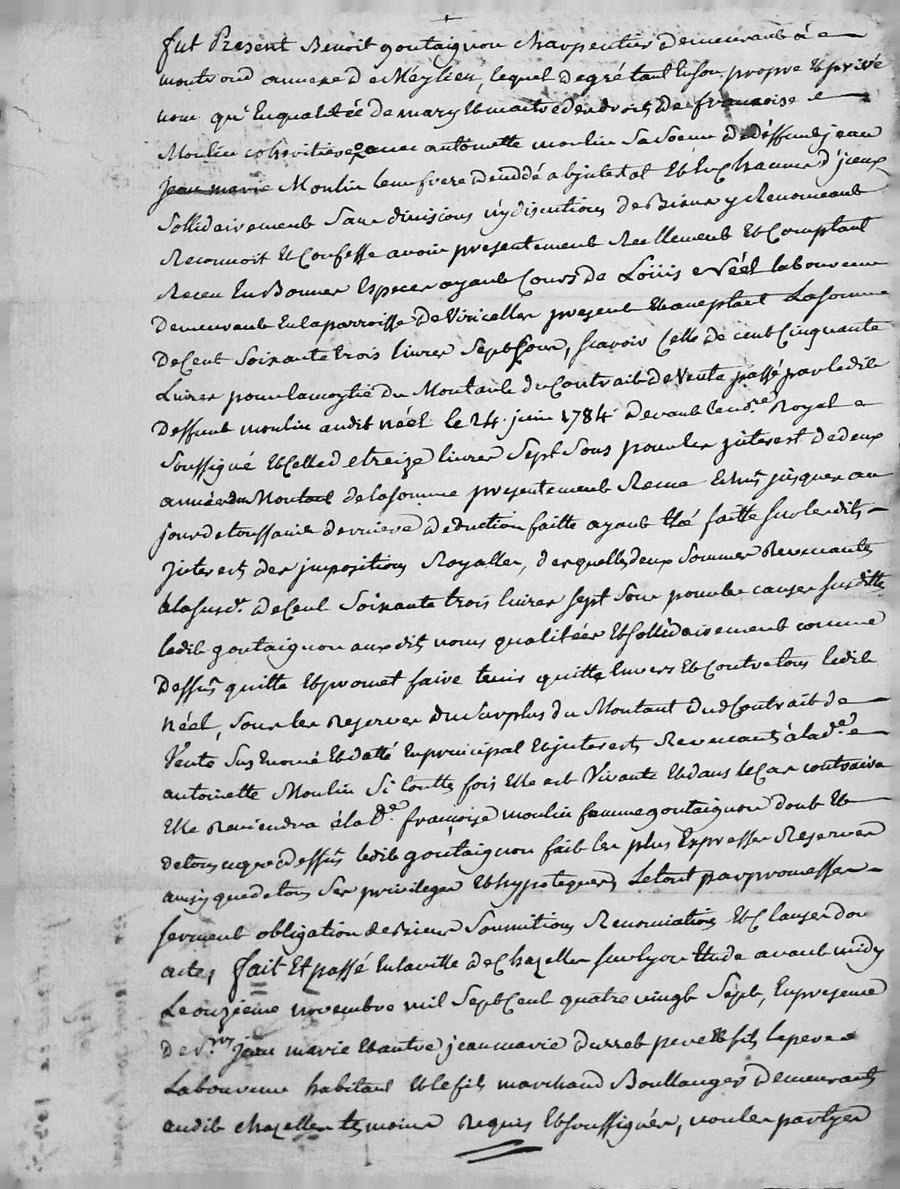 fut Present Benoit goutaignon charpentier demeurant à
montrond annexe de Meylieu, lequel degré tant En son propre Et privé
nom qu'En qualité de mary Et maitre des droits de françoise
Moulin cohéritiere avec antoinette moulin sa soeur de deffunt jean
jean marie Moulin leur frere decedé abjntestat Et En chacun d'jceux
sollidairement sans divisions ny discutions de Biens y Renonceant
Reconnoit Et Confesse avoir presentement Reellement Et Comptant
Receu En Bonnes Especes ayant Cours de Loüis Néél laboureur
demeurant En la parroisse de Viricelles present Et aceptant La somme
de Cent Soixante trois livres Sept Sous, scavoir Celle de cent Cinquante
Livres pour la moytié du Montant du Contrait de Vente passé par ledit
deffunt moulin audit néél le 24 juin 1784 devant le no.re Royal
soussigné Et Celle de treize livres Sept Sous pour les jnterest de deux
années du Montant de la somme presentement Receue Echus jusques au
jour de toussaint derniere deduction faitte ayant Eté faitte sur lesdits
jnterests des jmpositions Royalles, desquelles deux Sommes Revenants
à la susd.e de Cent Soixante trois livres sept Sous pour les causes susditte
ledit goutaignon auxdits noms qualitées Et sollidairement comme
dessus quitte Et promet faire tenir quitte Envers Et Contre tous ledit
Néél, sous les Reserves du surplus du Montant dud Contrait de
Vente sus Enoncé Et datté En principal Et jnterests Revenants à lad.e
antoinette Moulin Si toutte fois Elle est Vivante Et dans le Cas contraire
Elle Reviendra à lad.e françoise moulin femme goutaignon dont Et
de tous ce que dessus ledit goutaignon fait les plus Expresses Reserves
ainsy que de tous Ses privileges Et hypoteques, Le tout par promesses
serment obligation de Biens Soumitions Renonciations Et Clauses don
actes, fait Et passé En la ville de Chazelles sur lyon Etude avant midy
Le onzieme novembre mil Sept Cent quatre vingt Sept, En presence
de s.rs jean marie Et autre jean marie pere Et fils le pere
Laboureur habitant Et le fils marchand Boullanger demeurants
audit chazelles temoins Requis Et soussignés, non les partyes